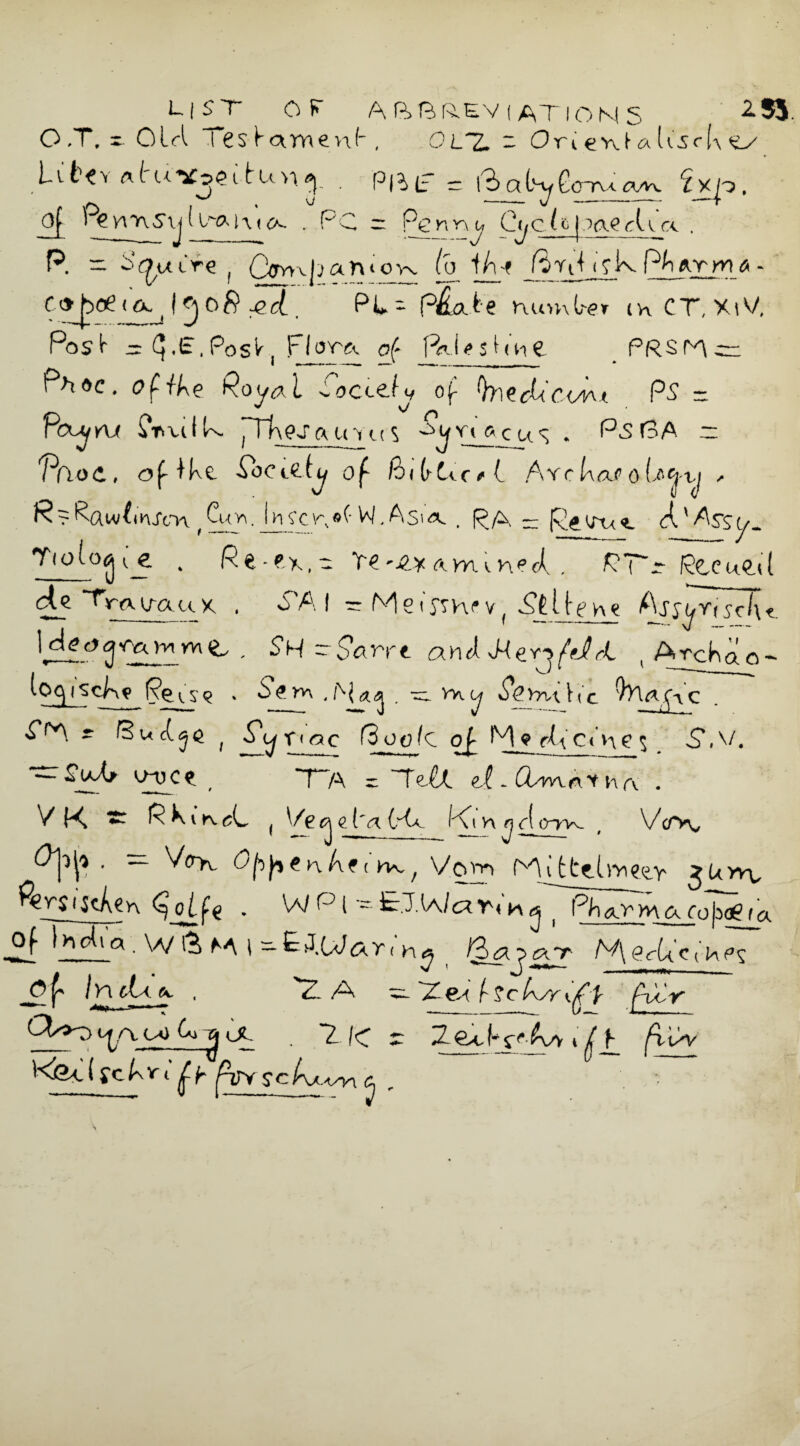 LIST OF ABBREVIATIONS 253.
O.T. = Old Testament, OLZ = Orientalische
Literaturzeitung. PBE = Babylonian Exp.
of Pennsylvania. PC = Penny Cyclopaedia.
P. = Squire, Companion to the British Pharma-
copœia, 1908 ed. PL = Plate number in CT, XIV.
Post = G.E. Post, Flora of Palestine PRSM =
Proc. of the Royal Society of Medicine PS =
Payne Smith, Thesaurus Syriacus. PSBA =
Proc. of the Society of Biblical Archaeology,
R = Rawlinson, Cun. Inscr. of W. Asia. RA = Revue d'Assy-
riologie. Re-ex. = re-examined. RT = Recueil
de Travaux. SAI = Meissner, Seltene Assyrische
Ideogramme, SH = Sarre and Herzfeld, Archäo-
logische Reise. Sem. Mag. = my Semitic Magic.
SM = Budge, Syriac Book of Medicines. S.V.
= Sub voce, TA = Tell el-Amarna.
VK = Rhind, Vegetable Kingdom, Von
Opp. = Von Oppenheim, Vom Mittelmeer zum
Persischen Golfe. WPI = E.J. Waring, Pharmacopœia
of India. WBMI = E.J. Waring, Bazar Medicines
of India, ZA = Zeitschrift für
Assyriologie. ZK = Zeitschrift für
Keilschriftforschung.